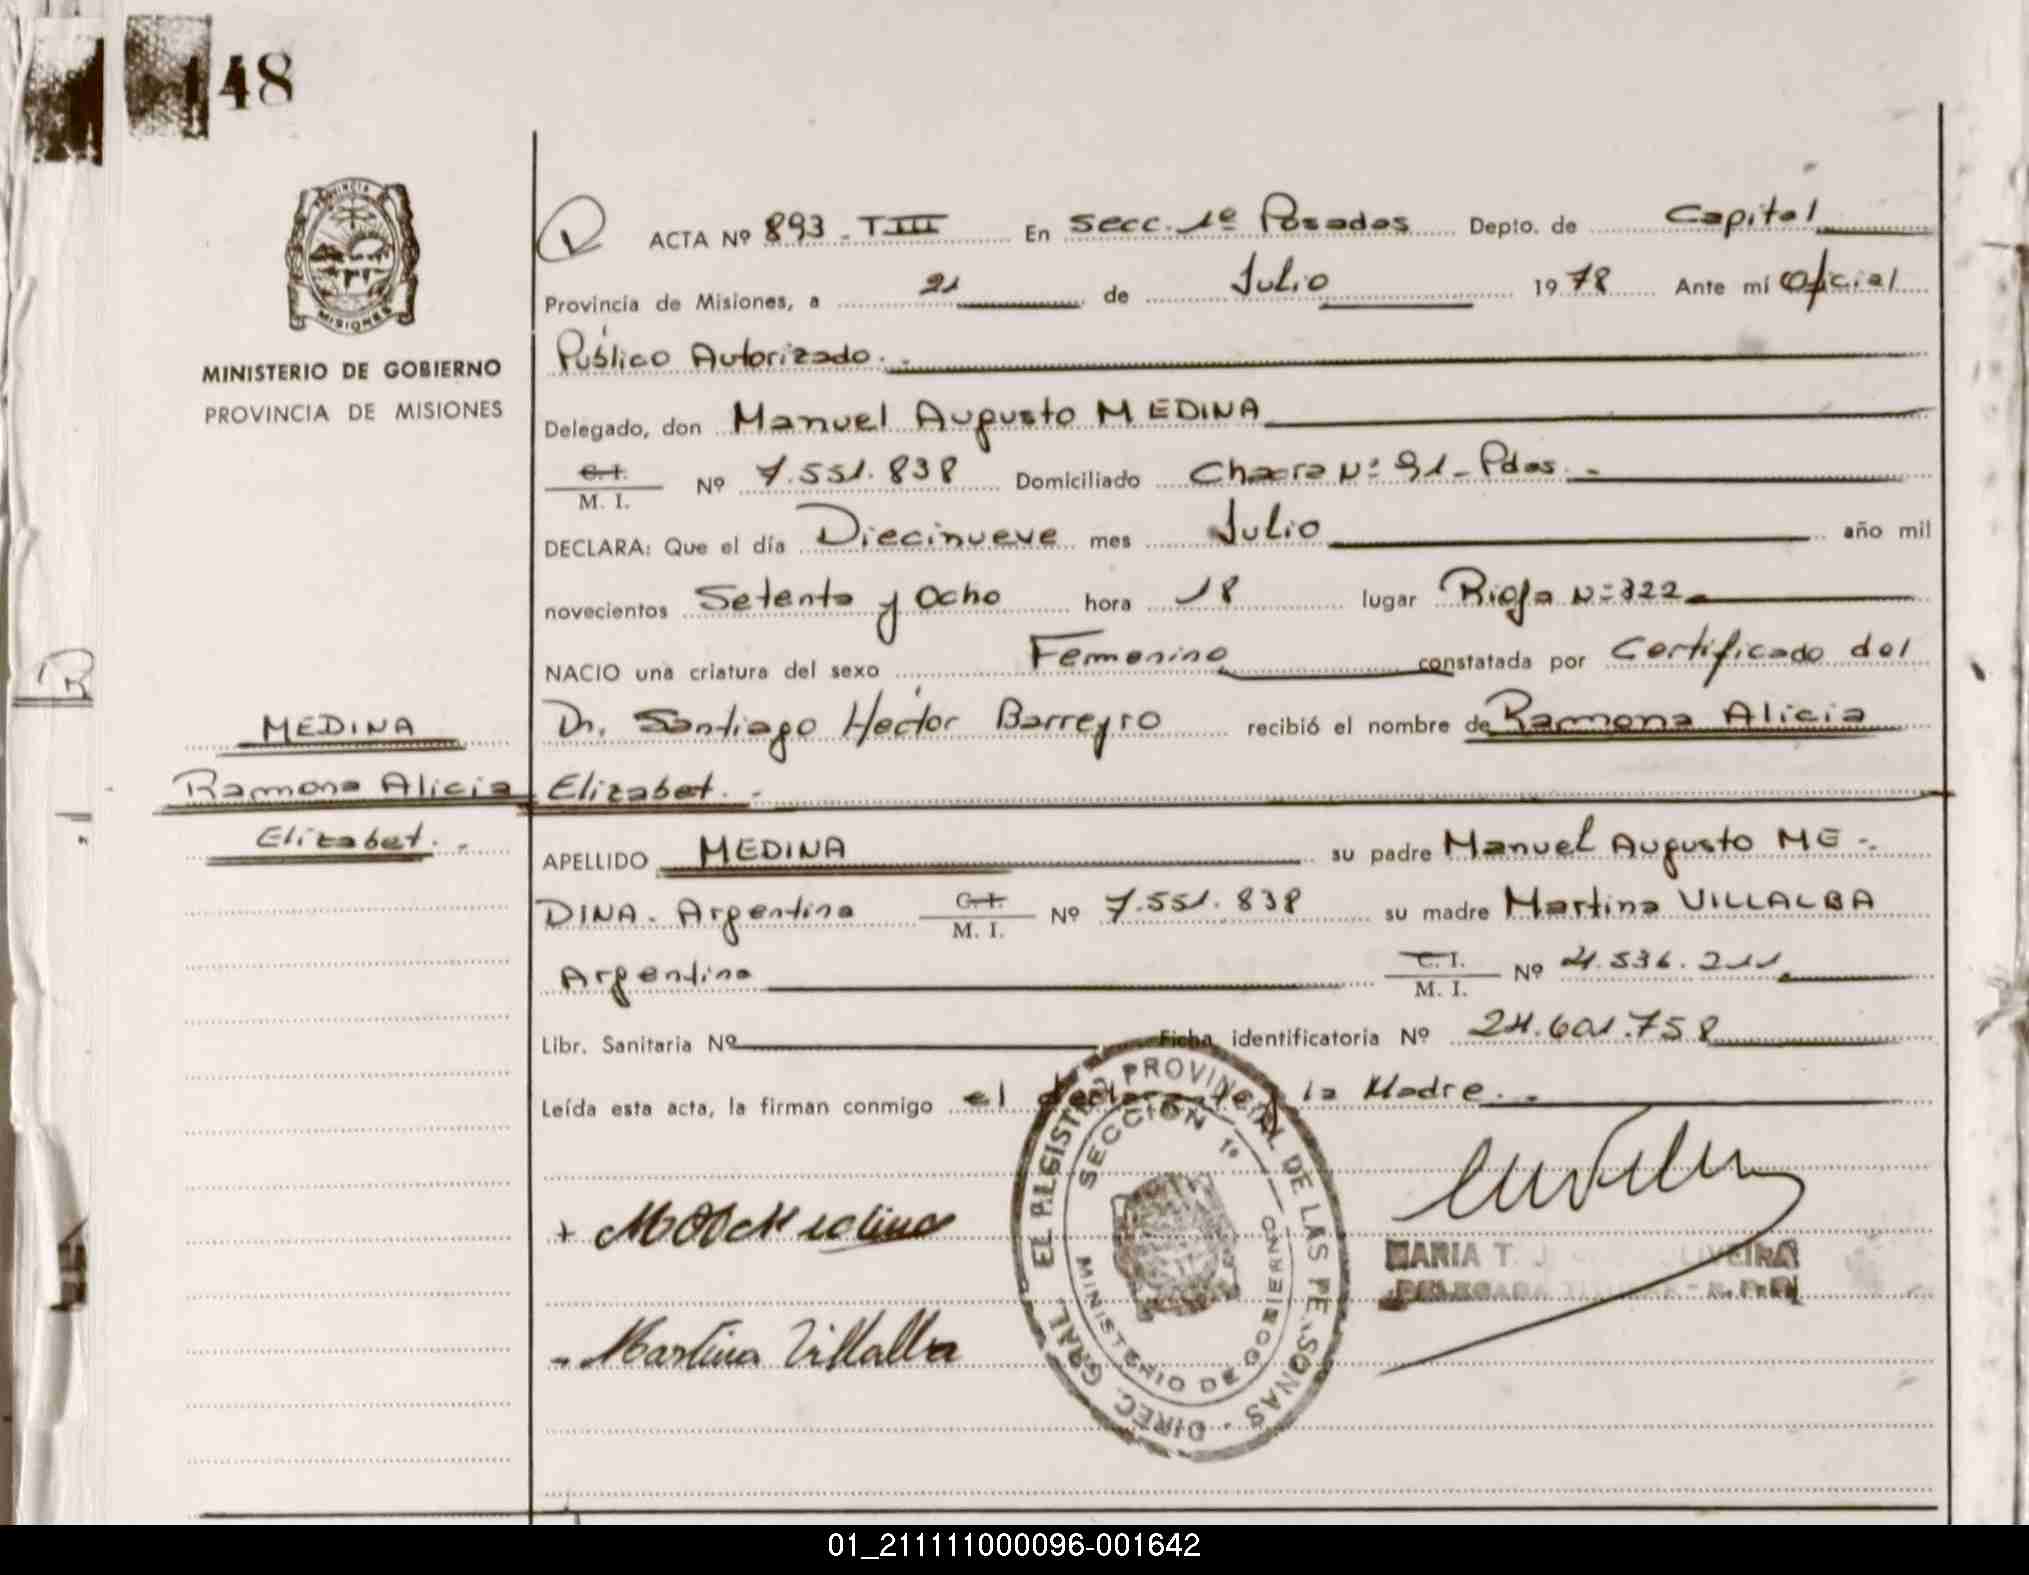 148
PROVINCIA
MISIONES
MINISTERIO DE GOBIERNO
PROVINCIA DE MISIONES
R
MEDINA
Ramona Alicia
Elizabet.-
ACTA Nº 893 - T III En Secc. 1º Posadas Depto. de Capital
Provincia de Misiones, a 21 de Julio 1978 Ante mí Oficial
Público Autorizado.-
Delegado, don Manuel Augusto MEDINA
C. I.
M. I. Nº 7.551.838 Domiciliado Chacra Nº 91 - Pdas.-
DECLARA: Que el día Diecinueve mes Julio año mil
novecientos Setenta y Ocho hora 18 lugar Rioja Nº 322
NACIO una criatura del sexo Femenino constatada por Certificado del
Dr. Santiago Héctor Barreyro recibió el nombre de Ramona Alicia
Elizabet.-
APELLIDO MEDINA su padre Manuel Augusto ME-
DINA - Argentino C. I. M. I. Nº 7.551.838 su madre Martina VILLALBA
Argentina C. I. M. I. Nº 4.536.211
Libr. Sanitaria Nº Ficha identificatoria Nº 24.601.758
Leída esta acta, la firman conmigo el declarante y la Madre.-
Medina
Martina Villalba
DIREC. GRAL. DEL REGISTRO PROVINCIAL DE LAS PERSONAS
SECCION 1º
MINISTERIO DE GOBIERNO
MARIA T. J
01_211111000096-001642